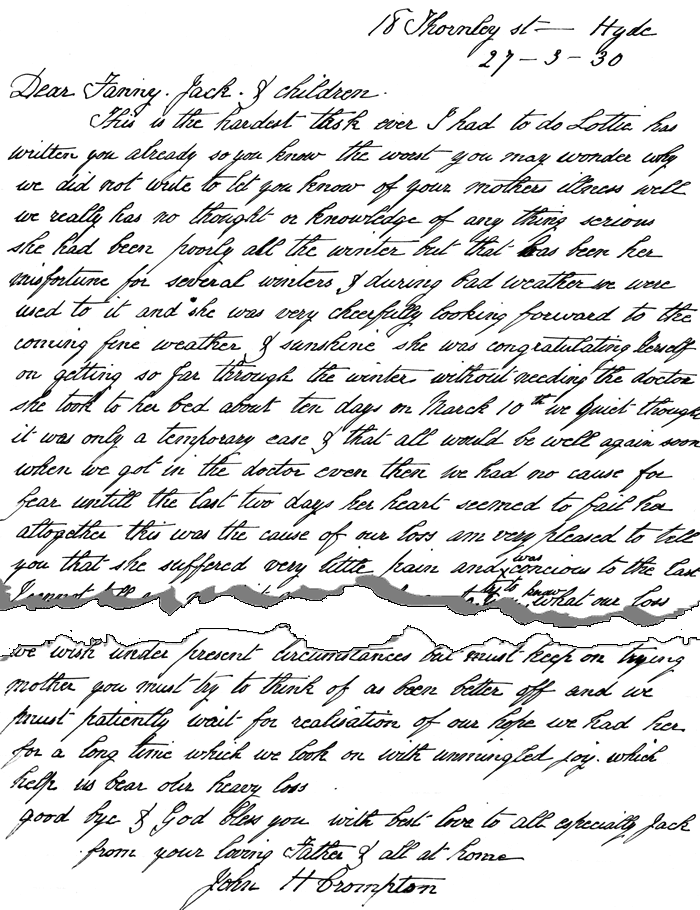 18 Thornley st — Hyde
27 - 3 - 30
Dear Fanny. Jack. & children.
This is the hardest task ever I had to do Lottie has
written you already so you know the worst you may wonder why
we did not write to let you know of your mothers illness well
we really has no thought or knowledge of any thing serious
she had been poorly all the winter but that has been her
misfortune for several winters & during bad weather we were
used to it and she was very cheerfully looking forward to the
coming fine weather & sunshine she was congratulating herself
on getting so far through the winter without needing the doctor
she took to her bed about ten days on March 10th we quiet though
it was only a temporary case & that all would be well again soon
when we got in the doctor even then we had no cause for
fear untill the last two days her heart seemed to fail her
altogether this was the cause of our loss am very pleased to tell
you that she suffered very little pain and was concious to the last
I cannot tell to know what our loss
we wish under present circumstances but must keep on trying
mother you must try to think of as been better off and we
must patiently wait for realisation of our hope we had her
for a long time which we look on with unmingled joy. which
help us bear our heavy loss.
good bye & God bless you with best love to all especially Jack
from your loving Father & all at home
John H Crompton